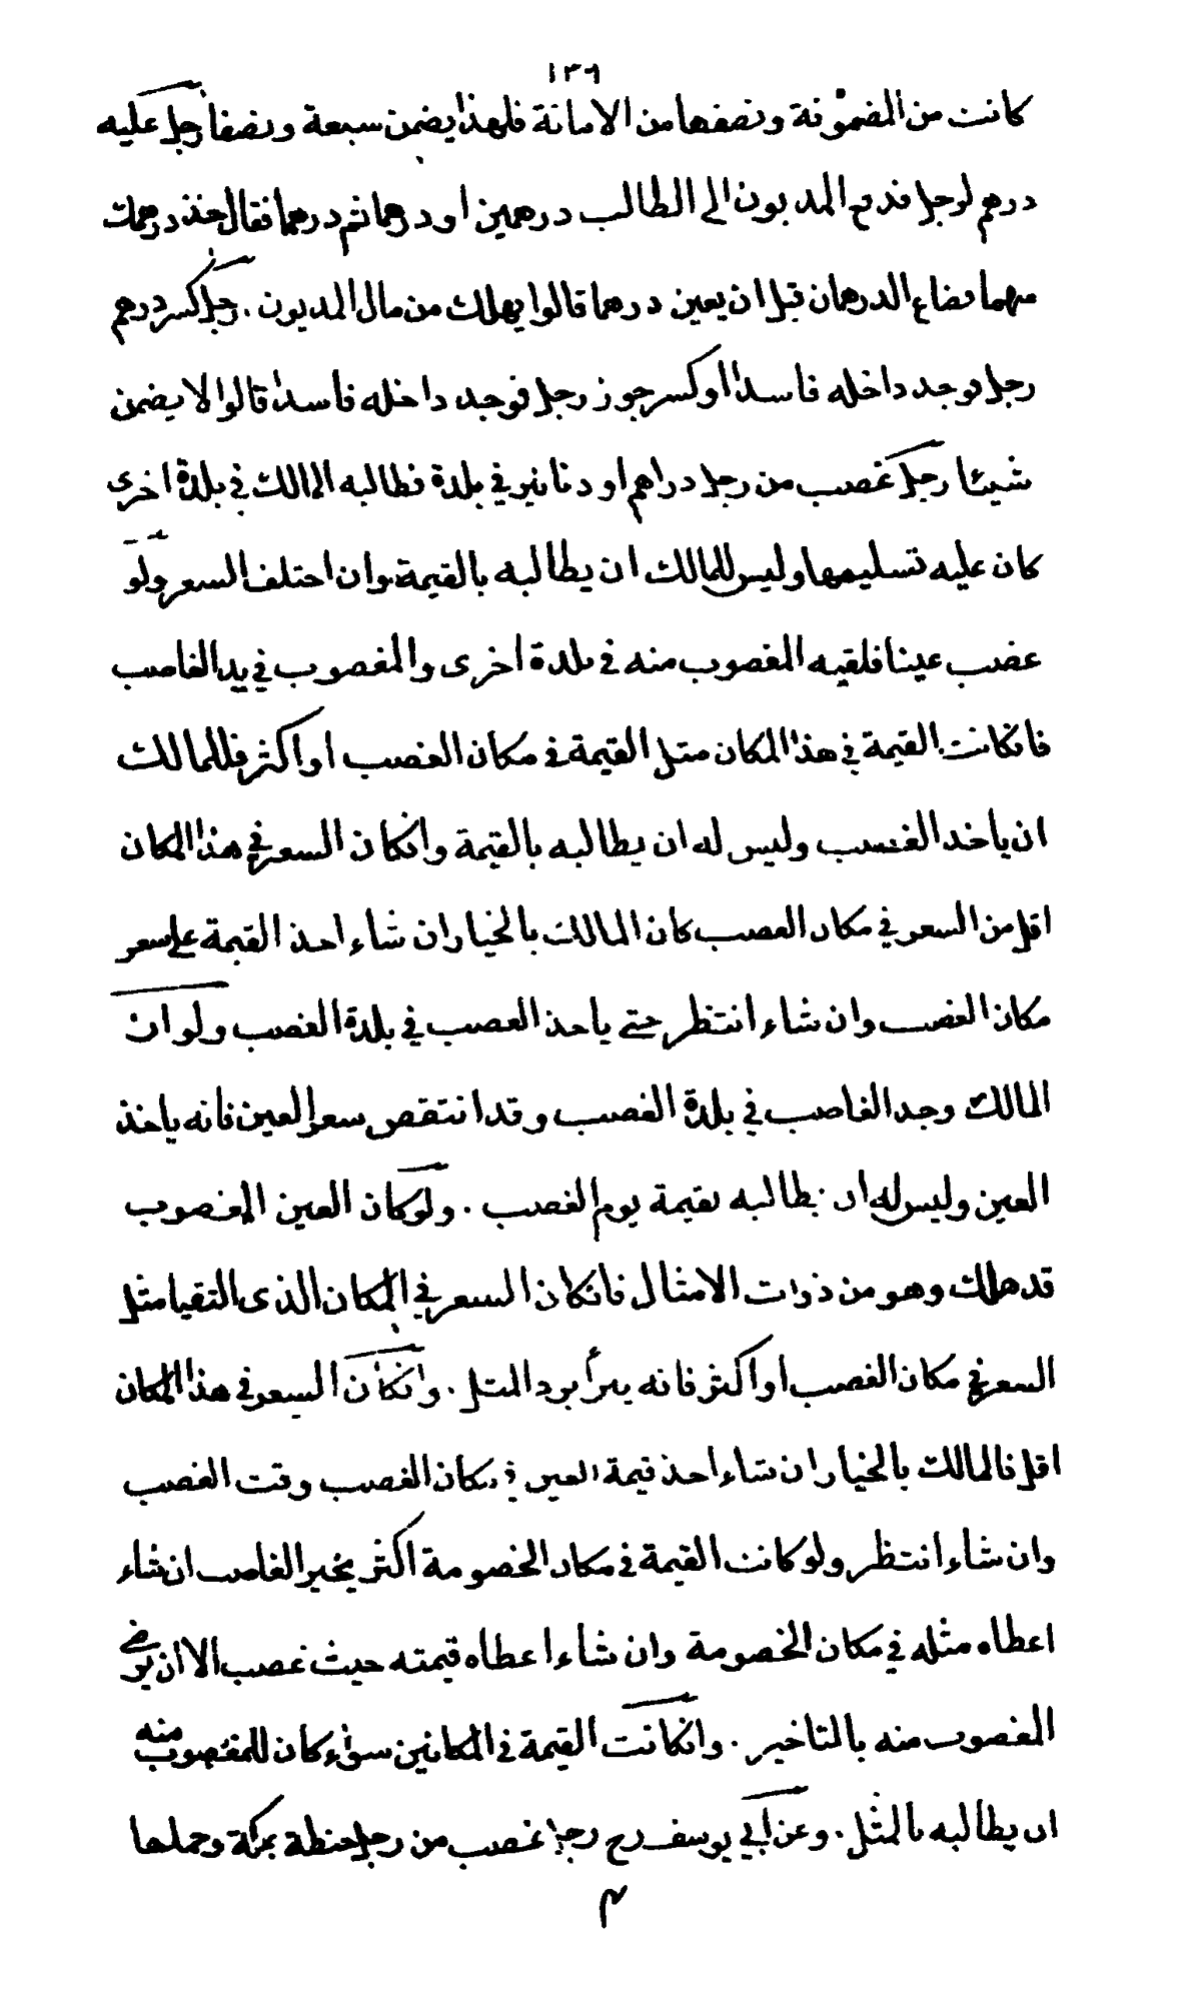 ١٣٦
كانت من المضمونة ونصفها من الامانة فلهذا يضمن سبعة ونصفا رجل عليه
درهم لرجل فدفع المديون الى الطالب درهمين او درهما ثم درهما فقال خذ درهمك
منهما فضاع الدرهمان قبل ان يعين درهما قالوا يهلك من مال المديون . رجل كسر درهم
رجل فوجد داخله فاسدا او كسر جوز رجل فوجد داخله فاسدا قالوا لا يضمن
شيئا رجل غصب من رجل دراهم او دنانير في بلدة فطالبه المالك في بلدة اخرى
كان عليه تسليمها وليس للمالك ان يطالبه بالقيمة وان اختلف السعر ولو
غصب عينا فلقيه المغصوب منه في بلدة اخرى والمغصوب في يد الغاصب
فانكانت القيمة في هذا المكان مثل القيمة في مكان الغصب او اكثر فللمالك
ان ياخذ الغصب وليس له ان يطالبه بالقيمة وانكان السعر في هذا المكان
اقل من السعر في مكان الغصب كان المالك بالخيار ان شاء اخذ القيمة على سعر
مكان الغصب وان شاء انتظر حتى ياخذ الغصب في بلدة الغصب ولو ان
المالك وجد الغاصب في بلدة الغصب وقد انتقص سعر العين فانه ياخذ
العين وليس له ان يطالبه بقيمة يوم الغصب . ولو كان العين المغصوب
قد هلك وهو من ذوات الامثال فانكان السعر في المكان الذى التقيا مثل
السعر في مكان الغصب او اكثر فانه يبرأ برد المثل . وانكان السعر في هذا المكان
اقل فالمالك بالخيار ان شاء اخذ قيمة العين في مكان الغصب وقت الغصب
وان شاء انتظر ولو كانت القيمة في مكان الخصومة اكثر يخير الغاصب ان شاء
اعطاه مثله في مكان الخصومة وان شاء اعطاه قيمته حيث غصب الا ان يرضى
المغصوب منه بالتاخير . وانكانت القيمة في المكانين سواء كان للمغصوب منه
ان يطالبه بالمثل . وعن ابي يوسف رح رجل غصب من رجل حنطة بمكة وحملها